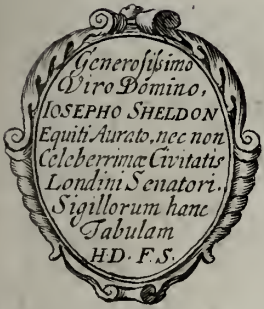 Generosißimo
Viro Domino,
IOSEPHO SHELDON
Equiti Aurato, nec non
Celeberrimæ Civitatis
Londini Senatori.
Sigillorum hanc
Tabulam
H·D· F.S.